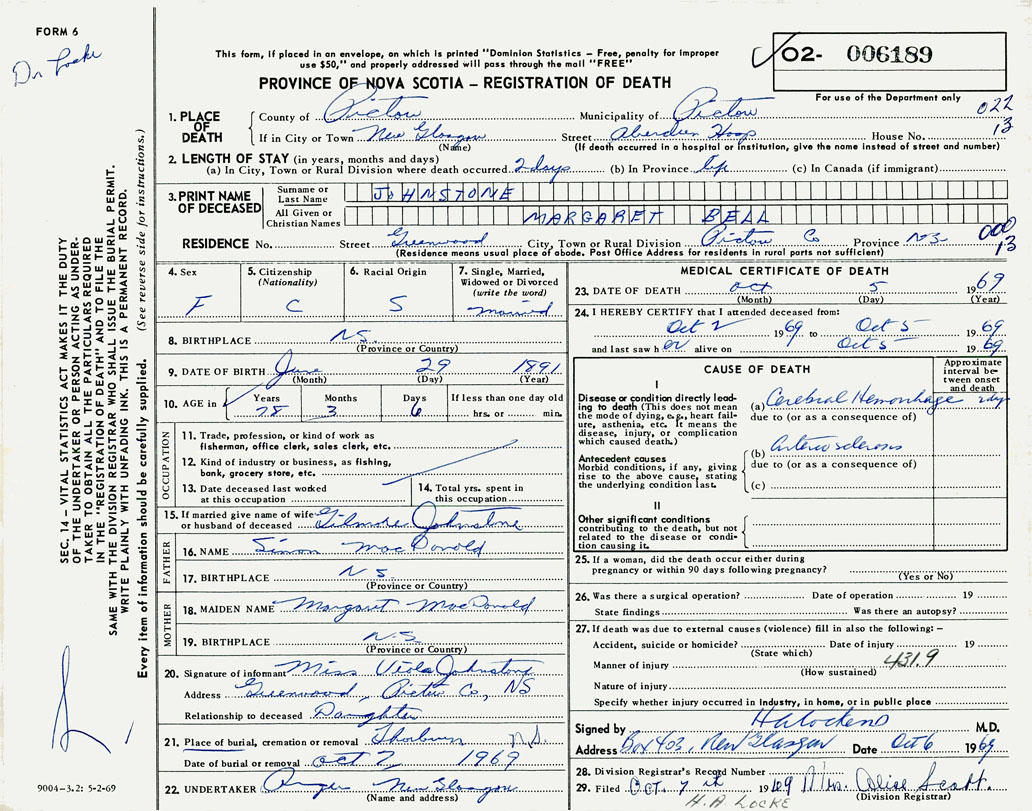 FORM 6
Dr Locke
This form, if placed in an envelope, on which is printed "Dominion Statistics – Free, penalty for improper
use $50," and properly addressed will pass through the mail "FREE"
PROVINCE OF NOVA SCOTIA – REGISTRATION OF DEATH
O2- 006189
For use of the Department only
022
13
1. PLACE OF DEATH
County of Pictou Municipality of Pictou
If in City or Town New Glasgow Street Aberdeen Hosp House No.
(Name) (If death occurred in a hospital or institution, give the name instead of street and number)
2. LENGTH OF STAY (in years, months and days)
(a) In City, Town or Rural Division where death occurred 2 days (b) In Province life (c) In Canada (if immigrant)
3. PRINT NAME OF DECEASED
Surname or Last Name JOHNSTONE
All Given or Christian Names MARGARET BELL
000
13
RESIDENCE No. Street Greenwood City, Town or Rural Division Pictou Co Province N.S.
(Residence means usual place of abode. Post Office Address for residents in rural parts not sufficient)
4. Sex
F
5. Citizenship
(Nationality)
C
6. Racial Origin
S
7. Single, Married,
Widowed or Divorced
(write the word)
married
8. BIRTHPLACE N.S.
(Province or Country)
9. DATE OF BIRTH June 29 1891
(Month) (Day) (Year)
10. AGE in Years Months Days If less than one day old
78 3 6 hrs. or min.
OCCUPATION
11. Trade, profession, or kind of work as
fisherman, office clerk, sales clerk, etc.
12. Kind of industry or business, as fishing,
bank, grocery store, etc.
13. Date deceased last worked
at this occupation
14. Total yrs. spent in
this occupation
15. If married give name of wife
or husband of deceased Gilmore Johnstone
FATHER
16. NAME Simon MacDonald
17. BIRTHPLACE N.S.
(Province or Country)
MOTHER
18. MAIDEN NAME Margaret MacDonald
19. BIRTHPLACE N.S.
(Province or Country)
20. Signature of informant Miss Viola Johnstone
Address Greenwood, Pictou Co, NS
Relationship to deceased Daughter
21. Place of burial, cremation or removal Thorburn N.S.
Date of burial or removal Oct 7 1969
22. UNDERTAKER New Glasgow
(Name and address)
MEDICAL CERTIFICATE OF DEATH
23. DATE OF DEATH Oct 5 1969
(Month) (Day) (Year)
24. I HEREBY CERTIFY that I attended deceased from:
Oct 2 1969 to Oct 5 1969
and last saw her alive on Oct 5 1969
CAUSE OF DEATH
Approximate
interval be-
tween onset
and death
I
Disease or condition directly lead-
ing to death (This does not mean
the mode of dying, e.g., heart fail-
ure, asthenia, etc. It means the
disease, injury, or complication
which caused death.)
(a) Cerebral Hemorrhage 2 dy
due to (or as a consequence of)
Antecedent causes
Morbid conditions, if any, giving
rise to the above cause, stating
the underlying condition last.
(b) Arteriosclerosis
due to (or as a consequence of)
(c)
II
Other significant conditions
contributing to the death, but not
related to the disease or condi-
tion causing it.
25. If a woman, did the death occur either during
pregnancy or within 90 days following pregnancy?
(Yes or No)
26. Was there a surgical operation? Date of operation 19
State findings Was there an autopsy?
27. If death was due to external causes (violence) fill in also the following: –
Accident, suicide or homicide? Date of injury 19
(State which)
Manner of injury 431.9
(How sustained)
Nature of injury
Specify whether injury occurred in Industry, in home, or in public place
Signed by H A Locke M.D.
Address Box 403, New Glasgow Date Oct 6 1969
28. Division Registrar's Record Number
29. Filed Oct. 7th 1969 Mrs. Alice Scott
(Division Registrar)
H. A. LOCKE
SEC. 14 – VITAL STATISTICS ACT MAKES IT THE DUTY
OF THE UNDERTAKER OR PERSON ACTING AS UNDER-
TAKER TO OBTAIN ALL THE PARTICULARS REQUIRED
IN THE "REGISTRATION OF DEATH" AND TO FILE THE
SAME WITH THE DIVISION REGISTRAR WHO SHALL ISSUE THE BURIAL PERMIT.
WRITE PLAINLY WITH UNFADING INK. THIS IS A PERMANENT RECORD.
Every item of information should be carefully supplied. (See reverse side for instructions.)
9004-3.2: 5-2-69